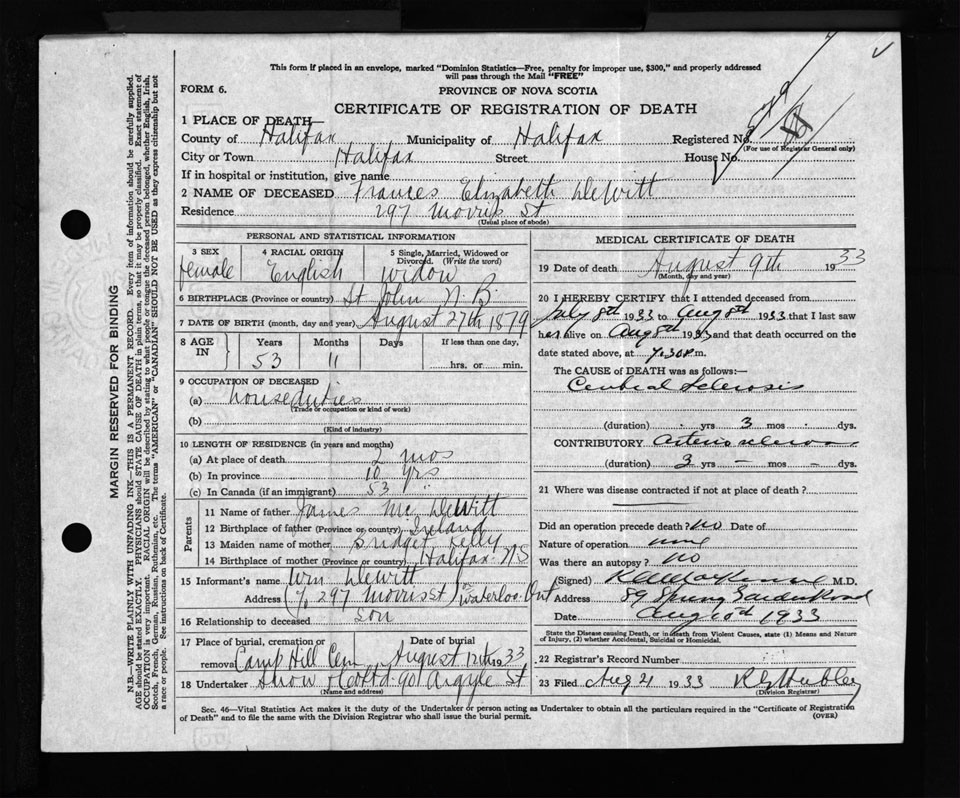 This form if placed in an envelope, marked "Dominion Statistics—Free, penalty for improper use, $300," and properly addressed
will pass through the Mail "FREE"
FORM 6.
PROVINCE OF NOVA SCOTIA
CERTIFICATE OF REGISTRATION OF DEATH
1 PLACE OF DEATH—
County of Halifax Municipality of Halifax Registered No.
(For use of Registrar General only)
City or Town Halifax Street House No.
If in hospital or institution, give name
2 NAME OF DECEASED Frances Elizabeth DeWitt
Residence 297 Morris St
(Usual place of abode)
PERSONAL AND STATISTICAL INFORMATION
3 SEX 4 RACIAL ORIGIN 5 Single, Married, Widowed or
Divorced. (Write the word)
female English widow
6 BIRTHPLACE (Province or country) St John N.B.
7 DATE OF BIRTH (month, day and year) August 27th 1879
8 AGE IN Years Months Days If less than one day,
53 11 hrs. or min.
9 OCCUPATION OF DECEASED
(a) house duties
(Trade or occupation or kind of work)
(b)
(Kind of industry)
10 LENGTH OF RESIDENCE (in years and months)
(a) At place of death 2 mos
(b) In province 10 yrs
(c) In Canada (if an immigrant) 53
Parents
11 Name of father James Mc DeWitt
12 Birthplace of father (Province or country) Ireland
13 Maiden name of mother Bridget Kelly
14 Birthplace of mother (Province or country) Halifax NS
15 Informant's name Wm DeWitt
Address 297 Morris St Waterloo Ont
16 Relationship to deceased son
17 Place of burial, cremation or Date of burial
removal Camp Hill Cem August 12th 1933
18 Undertaker Snow & Co Ltd 90 Argyle St
(Name and address)
MEDICAL CERTIFICATE OF DEATH
19 Date of death August 9th 1933
(Month, day and year)
20 I HEREBY CERTIFY that I attended deceased from
July 8th 1933 to Aug 8th 1933 that I last saw
her alive on Aug 8th 1933 and that death occurred on the
date stated above, at 7.30 P m.
The CAUSE of DEATH was as follows:—
Cerebral Sclerosis
(duration) - yrs 3 mos - dys.
CONTRIBUTORY arterio sclerosis
(duration) 3 yrs — mos — dys.
21 Where was disease contracted if not at place of death?
Did an operation precede death? no Date of
Nature of operation none
Was there an autopsy? no
(Signed) M.D.
Address 89 Spring Garden Road
Date Aug 10th 1933
State the Disease causing Death, or in death from Violent Causes, state (1) Means and Nature
of Injury, (2) whether Accidental, Suicidal or Homicidal.
22 Registrar's Record Number
23 Filed Aug 21 1933
(Division Registrar)
Sec. 46—Vital Statistics Act makes it the duty of the Undertaker or person acting as Undertaker to obtain all the particulars required in the "Certificate of Registration
of Death" and to file the same with the Division Registrar who shall issue the burial permit.
(OVER)
MARGIN RESERVED FOR BINDING
N.B.—WRITE PLAINLY WITH UNFADING INK—THIS IS A PERMANENT RECORD. Every item of information should be carefully supplied.
AGE should be stated EXACTLY. PHYSICIANS should STATE CAUSE OF DEATH in plain terms, so that it may be properly classified. Exact statement of
OCCUPATION is very important. RACIAL ORIGIN will be described by stating to what people or tongue the deceased person belonged, whether English, Irish,
Scotch, French, German, Russian, Ruthenian, etc. The terms "AMERICAN" or "CANADIAN" SHOULD NOT BE USED as they express citizenship but not
a race or people. See instructions on back of Certificate.